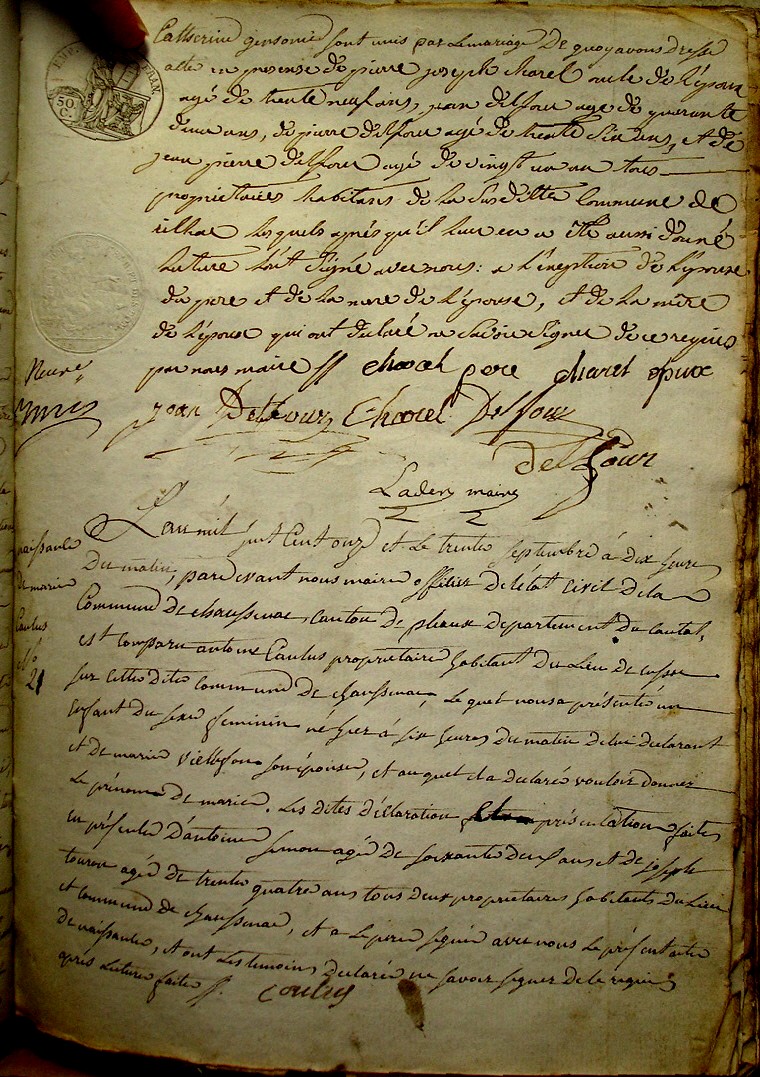 Catherine gensonie sont unis par le mariage De quoy avons dressé
acte en presence de pierre joseph charel oncle de l'epoux
agé de trente neuf ans, jean delfour agé de quarante
deux ans, de pierre delfour agé de trente six ans, et de
jean pierre delfour agé de vingt un an tous
proprietaires habitans de la susditte Commune de
ribhac lesquels aprés qu'il leur en a été aussi donné
lecture l'ont signé avec nous: a l'exeption de l'épouse
du pere et de la mere de l'épouse, et de la mère
de l'époux qui ont declaré ne savoir signer de ce requis
par nous maire
charel pere charel epoux
jean Delfour Charel Delfour
delfour
Laden maire
L'an mil huit Cent onze et le trente septembre à dix heures
Du matin, pardevant nous maire officier de l'état Civil de la
Commune de chaussenac, canton de pleaux departement Du cantal,
est comparu antoine Caulus proprietaire habitant Du Lieu de
sur cette dite commune de chaussenac, Le quel nous a présenté un
Enfant Du sexe feminin né hier à six heures Du matin de lui declarant
et de marie vielfon son épouse, et au quel il a declaré vouloir donner
Le prénom de marie. Les dites déclaration présentation faites
en présence D'antoine semon agé de soixante deux ans et de joseph
touron agé de trente quatre ans tous deux proprietaires habitants Du Lieu
et commune de chaussenac, et a le pere signé avec nous Le présent acte
de naissance, et ont Les temoins declaré ne savoir signer de ce requis
après Lecture faite
caulus
naissance
de marie
Caulus
N°
21
EMP. FRAN.
50
C.